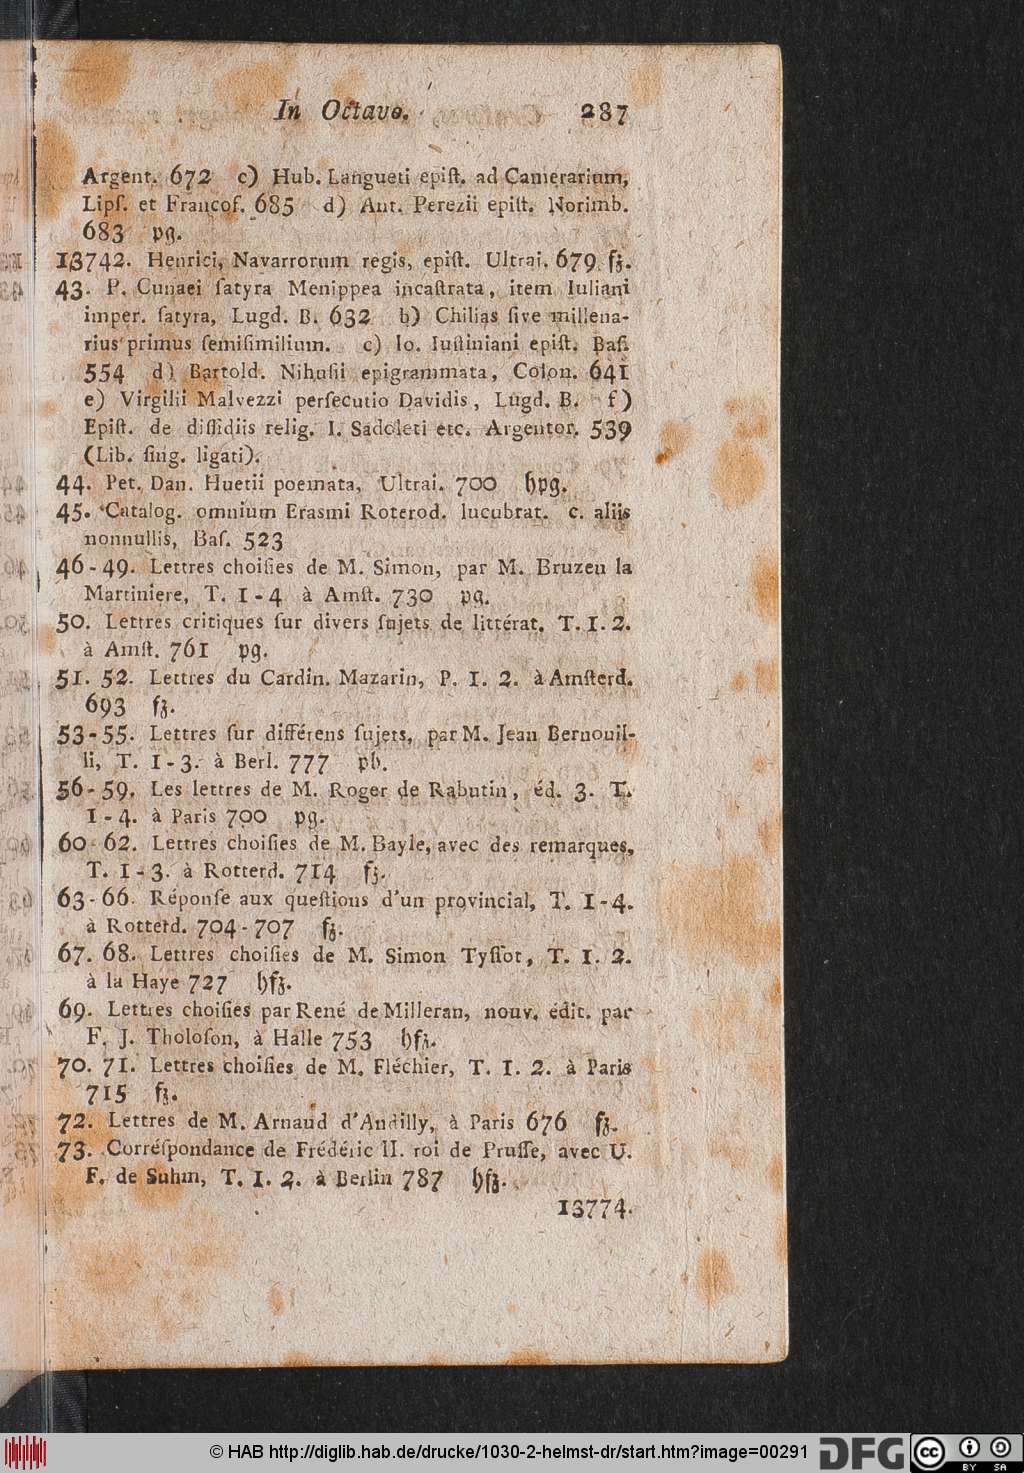 In Octavo. 287
Argent. 672 c) Hub. Langueti epiſt. ad Camerarium,
Lipſ. et Francof. 685 d) Ant. Perezii epiſt. Norimb.
683 pg.
13742. Henrici, Navarrorum regis, epiſt. Ultrai. 679 fz.
43. P. Cunaei ſatyra Menippea incaſtrata, item Iuliani
imper. ſatyra, Lugd. B. 632 b) Chilias ſive millena-
rius primus ſemiſimilium. c) Io. Iuſtiniani epiſt. Baſ.
554 d) Bartold. Nihuſii epigrammata, Colon. 641
e) Virgilii Malvezzi perſecutio Davidis, Lugd. B. f)
Epiſt. de diſſidiis relig. I. Sadoleti etc. Argentor. 539
(Lib. ſing. ligati).
44. Pet. Dan. Huetii poemata, Ultrai. 700 hpg.
45. Catalog. omnium Erasmi Roterod. lucubrat. c. aliis
nonnullis, Baſ. 523
46-49. Lettres choiſies de M. Simon, par M. Bruzen la
Martiniere, T. 1-4 à Amſt. 730 pg.
50. Lettres critiques ſur divers ſujets de littérat. T. 1. 2.
à Amſt. 761 pg.
51. 52. Lettres du Cardin. Mazarin, P. 1. 2. à Amſterd.
693 fz.
53-55. Lettres ſur différens ſujets, par M. Jean Bernouil-
li, T. 1-3. à Berl. 777 pb.
56-59. Les lettres de M. Roger de Rabutin, éd. 3. T.
1-4. à Paris 700 pg.
60-62. Lettres choiſies de M. Bayle, avec des remarques,
T. 1-3. à Rotterd. 714 fz.
63-66. Réponſe aux queſtions d'un provincial, T. 1-4.
à Rotterd. 704-707 fz.
67. 68. Lettres choiſies de M. Simon Tyſſot, T. 1. 2.
à la Haye 727 hfz.
69. Lettres choiſies par René de Milleran, nouv. édit. par
F. J. Tholoſon, à Halle 753 hfz.
70. 71. Lettres choiſies de M. Fléchier, T. 1. 2. à Paris
715 fz.
72. Lettres de M. Arnaud d'Andilly, à Paris 676 fz.
73. Corréſpondance de Frédéric II. roi de Pruſſe, avec U.
F. de Suhm, T. 1. 2. à Berlin 787 hfz.
13774.
© HAB http://diglib.hab.de/drucke/1030-2-helmst-dr/start.htm?image=00291 DFG cc BY SA